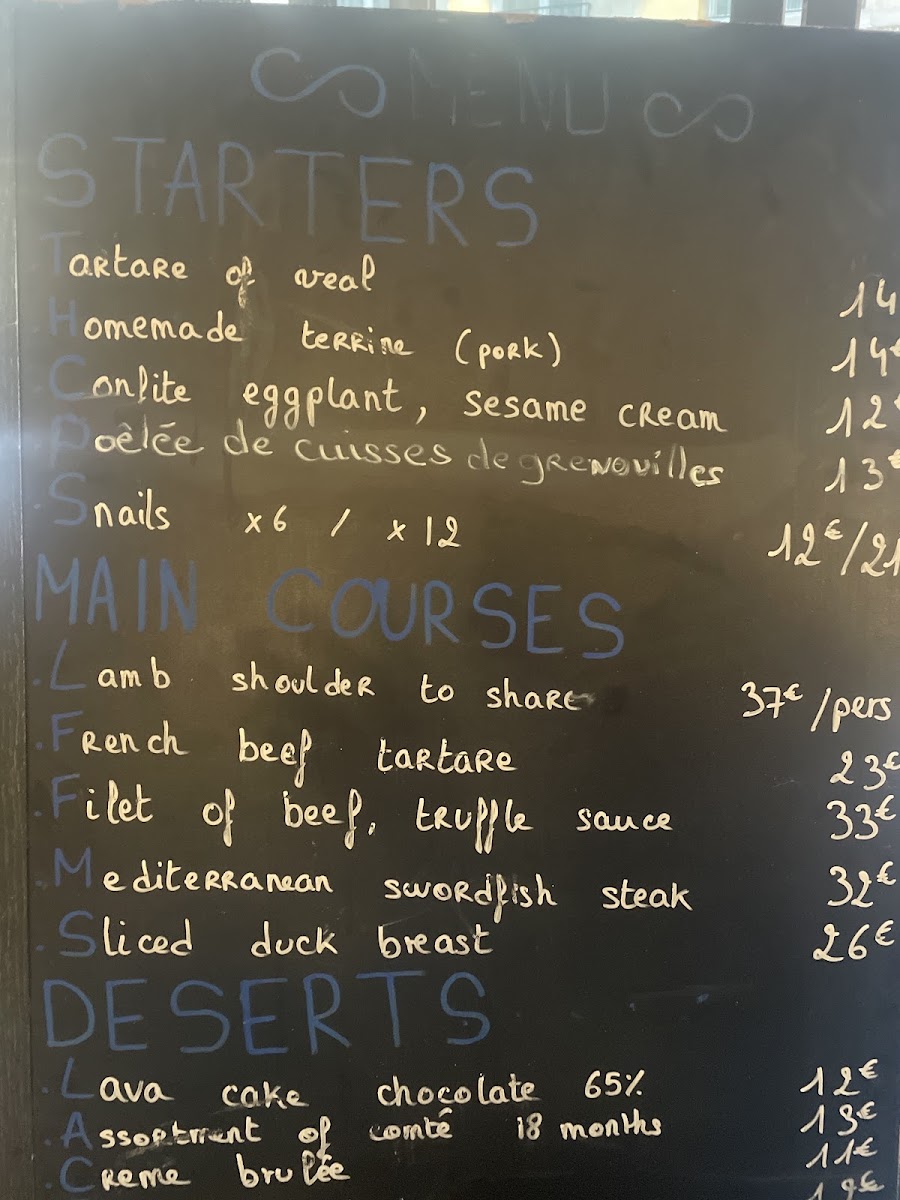 MENU
STARTERS
Tartare of veal 14
Homemade terrine (pork) 14€
Confite eggplant, sesame cream 12€
Poêlée de cuisses de grenouilles 13€
. Snails x6 / x12 12€/21
MAIN COURSES
. Lamb shoulder to share 37€/pers
. French beef tartare 23€
. Filet of beef, truffle sauce 33€
. Mediterranean swordfish steak 32€
. Sliced duck breast 26€
DESERTS
. Lava cake chocolate 65% 12€
. Assortment of comté 18 months 13€
. Creme brulée 11€